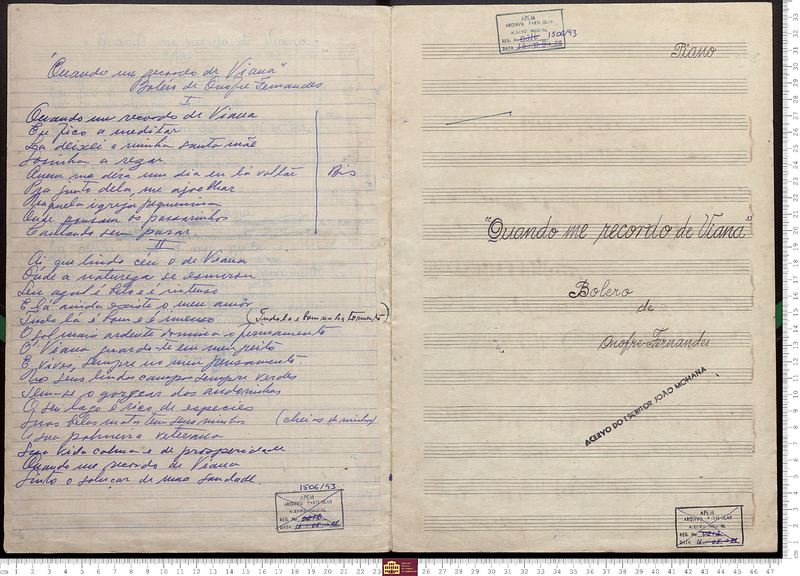 "Quando me recordo de Viana"
Bolero de Onofre Fernandes
I
Quando me recordo de Viana
Eu fico a meditar
La deixei a minha santa mãe
Sosinha a rezar
Quem me dera um dia eu lá voltar
Bis
Pra junto dela, me ajoelhar
Naquela igreja pequenina
Onde pousam os passarinhos
Cantando sem parar
II
Ai que lindo céu o de Viana
Onde a natureza se esmerou
Seu azul é belo e é intenso
E lá ainda existe o meu amôr
Tudo lá é bom e é imenso (Tudo lá é bom não há tormento)
O sol mais ardente domina o firmamento
O' Viana guardo-te em meu peito
E vives, sempre no meu pensamento.
Nos seus lindos campos sempre verdes
Tem-se o gorgear das andorinhas
O seu lago é rico de especies
Suas belas matas tem seus ninhos (cheias de ninhos)
A sua palmeira veterana
Sua vida calma e de prosperidade
Quando me recordo de Viana
Sinto o soluçar de uma saudade.
1506/93
APEM
ARQUIVO PARTICULAR
ACERVO MUSICAL
REG. Nº
DATA
APEM
ARQUIVO PARTICULAR
ACERVO MUSICAL
REG. Nº 1506/93
DATA
Piano
"Quando me recordo de Viana"
Bolero
de
Onofre Fernandes
ACERVO DO ESCRITOR JOÃO MOHANA
APEM
ARQUIVO PARTICULAR
ACERVO MUSICAL
REG. Nº
DATA